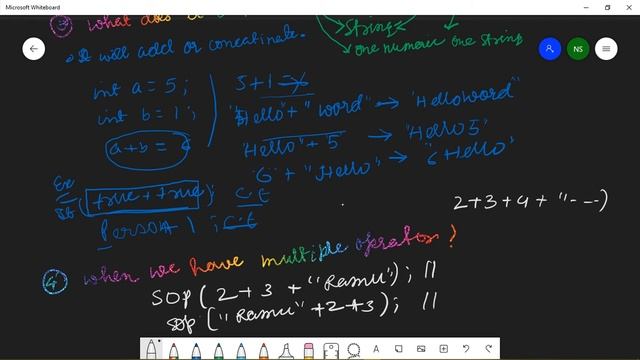 Microsoft Whiteboard
what does
String
one numeric one string
It will add or concatinate.
int a = 5;
int b = 1;
a+b = 6
5+1
"Hello" + " word" → "Helloword"
"Hello" + 5 → "Hello5"
"6" + "Hello" → "6Hello"
Exe
true + true); C.E
Person + 1; C.E
2+3+4+"---)
4 when we have multiple operators?
SOP( 2+3 + "Ramu"); //
SOP ("Ramu" +2+3); //
NS